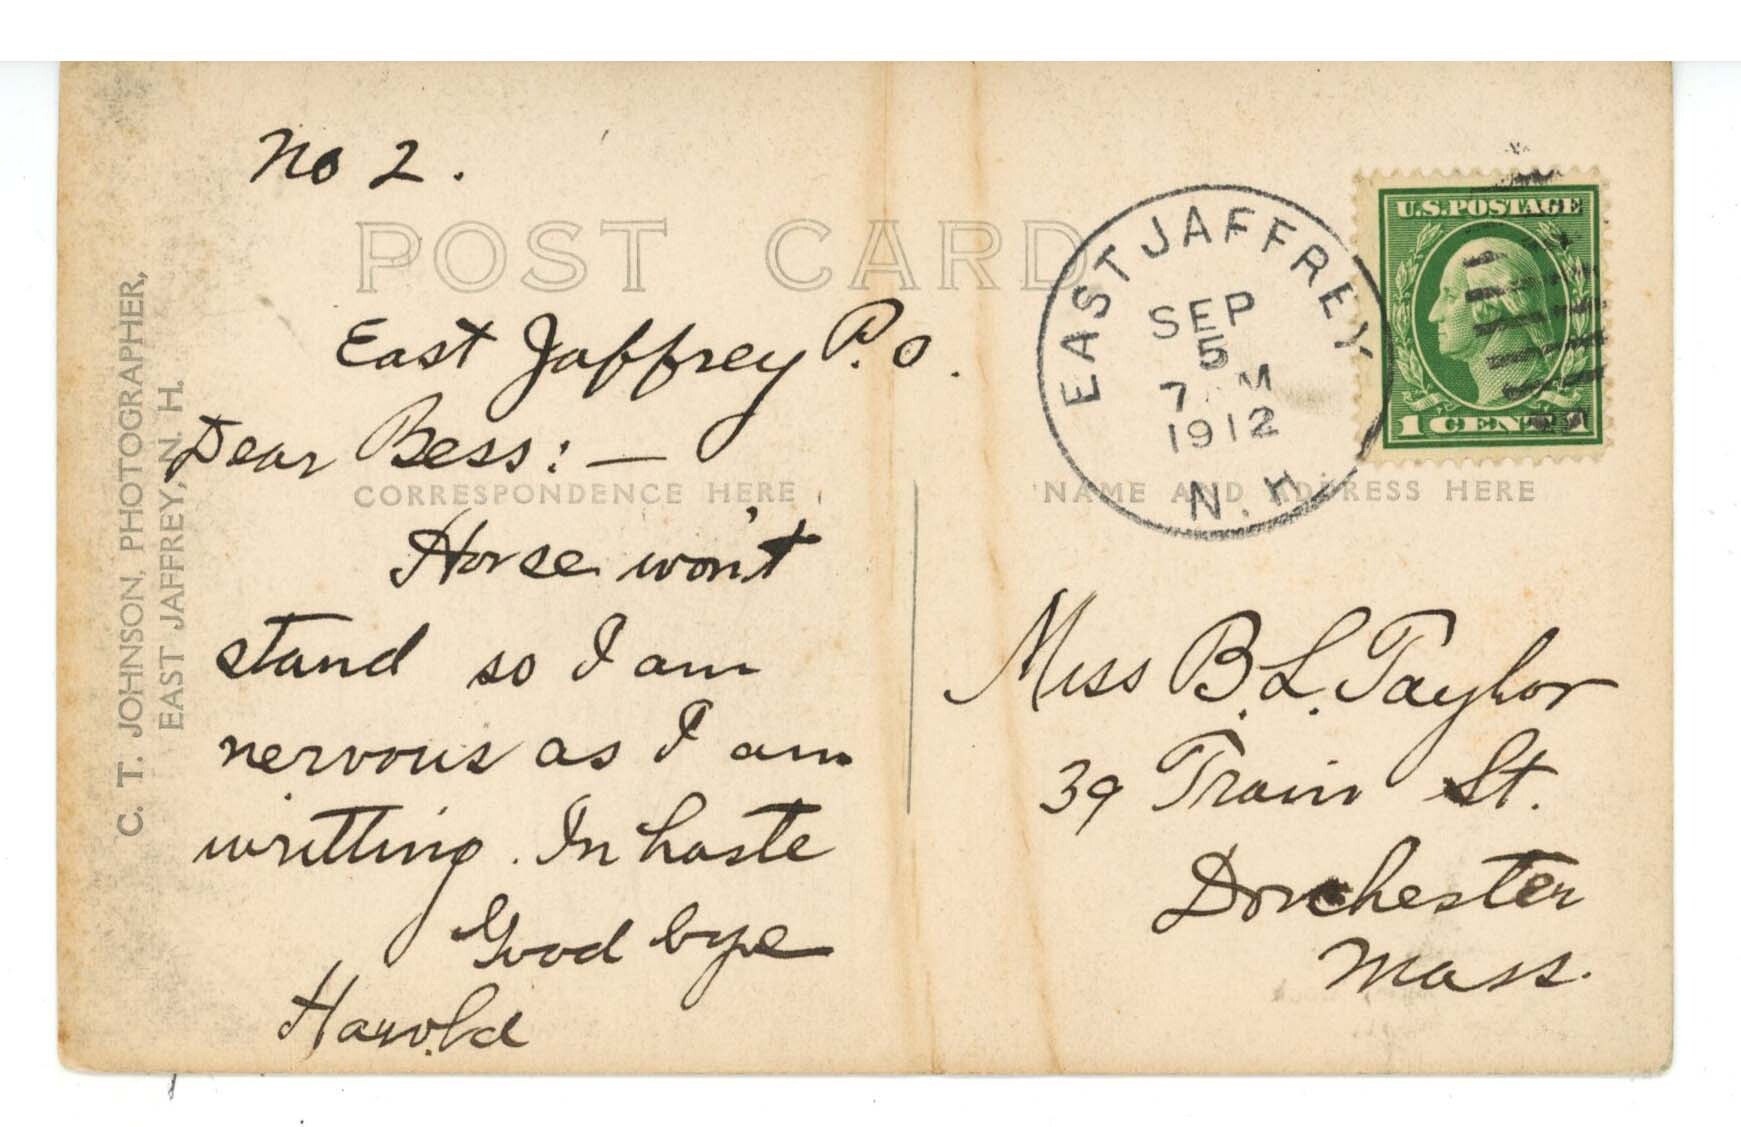 No 2.
POST CARD
East Jaffrey P.O.
Dear Bess: —
CORRESPONDENCE HERE
Horse won't
stand so I am
nervous as I am
writting. In haste
Good bye
Harold
C. T. JOHNSON, PHOTOGRAPHER,
EAST JAFFREY, N. H.
EAST JAFFREY
SEP
5
7 M
1912
N.H.
U.S.POSTAGE
1 CENT
NAME AND ADDRESS HERE
Miss B.L. Taylor
39 Train St.
Dorchester
Mass.